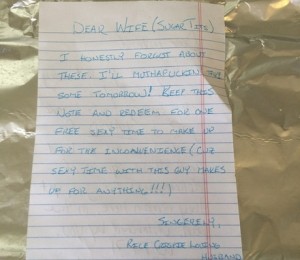 DEAR WIFE (SUGAR TITS)
I HONESTLY FORGOT ABOUT
THESE. I'LL MUTHAFUCKIN
SOME TOMORROW! KEEP THIS
NOTE AND REDEEM FOR ONE
FREE SEXY TIME TO MAKE UP
FOR THE INCONVENIENCE (CUZ
SEXY TIME WITH THIS GUY MAKES
UP FOR ANYTHING!!!)
SINCERELY,
COOKIE LOVING
HUSBAND